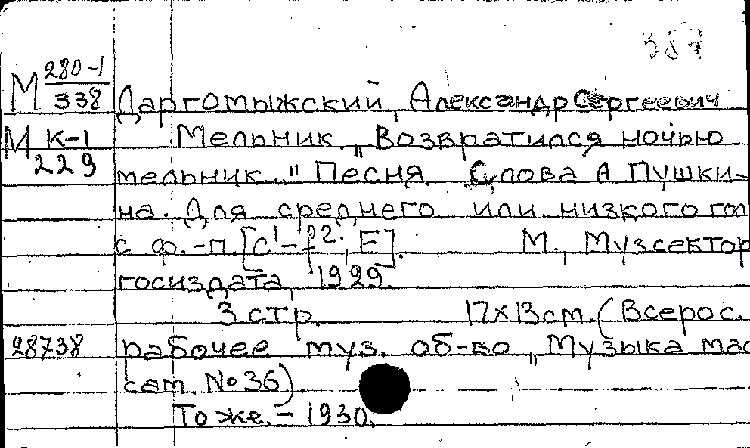 387
М 280-1/338 Даргомыжский, Александр Сергеевич
М К-1/229 Мельник. „Возвратился ночью
мельник..." Песня. Слова А Пушки-
на. Для среднего или низкого гол
с ф.-п. [c¹-f²; E]. М., Музсектор
госиздата, 1929.
3 стр. 17x13 см. (Всерос.
28738 рабочее муз. об-во „Музыка мас
сам. №36)
То же. – 1930.